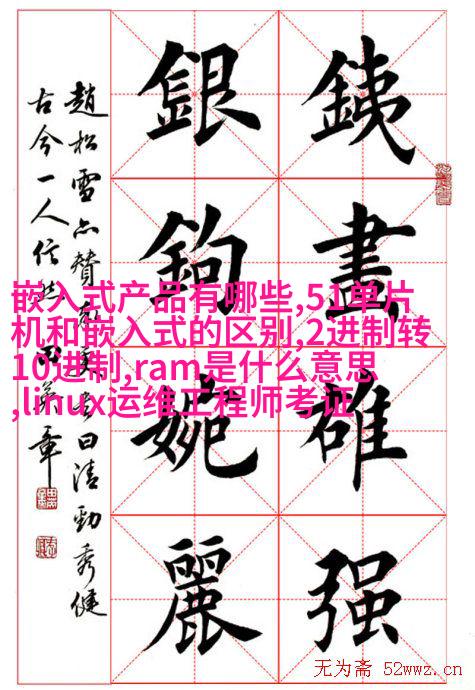 銕畫雄强
銀鉤婉麗
趙松雪亦贊曰清勁秀健
古今一人信然 田英章
嵌入式产品有哪些,51单片
机和嵌入式的区别,2进制转
10进制,ram是什么意思
,linux运维工程师考证
无为斋 52wwz.cn